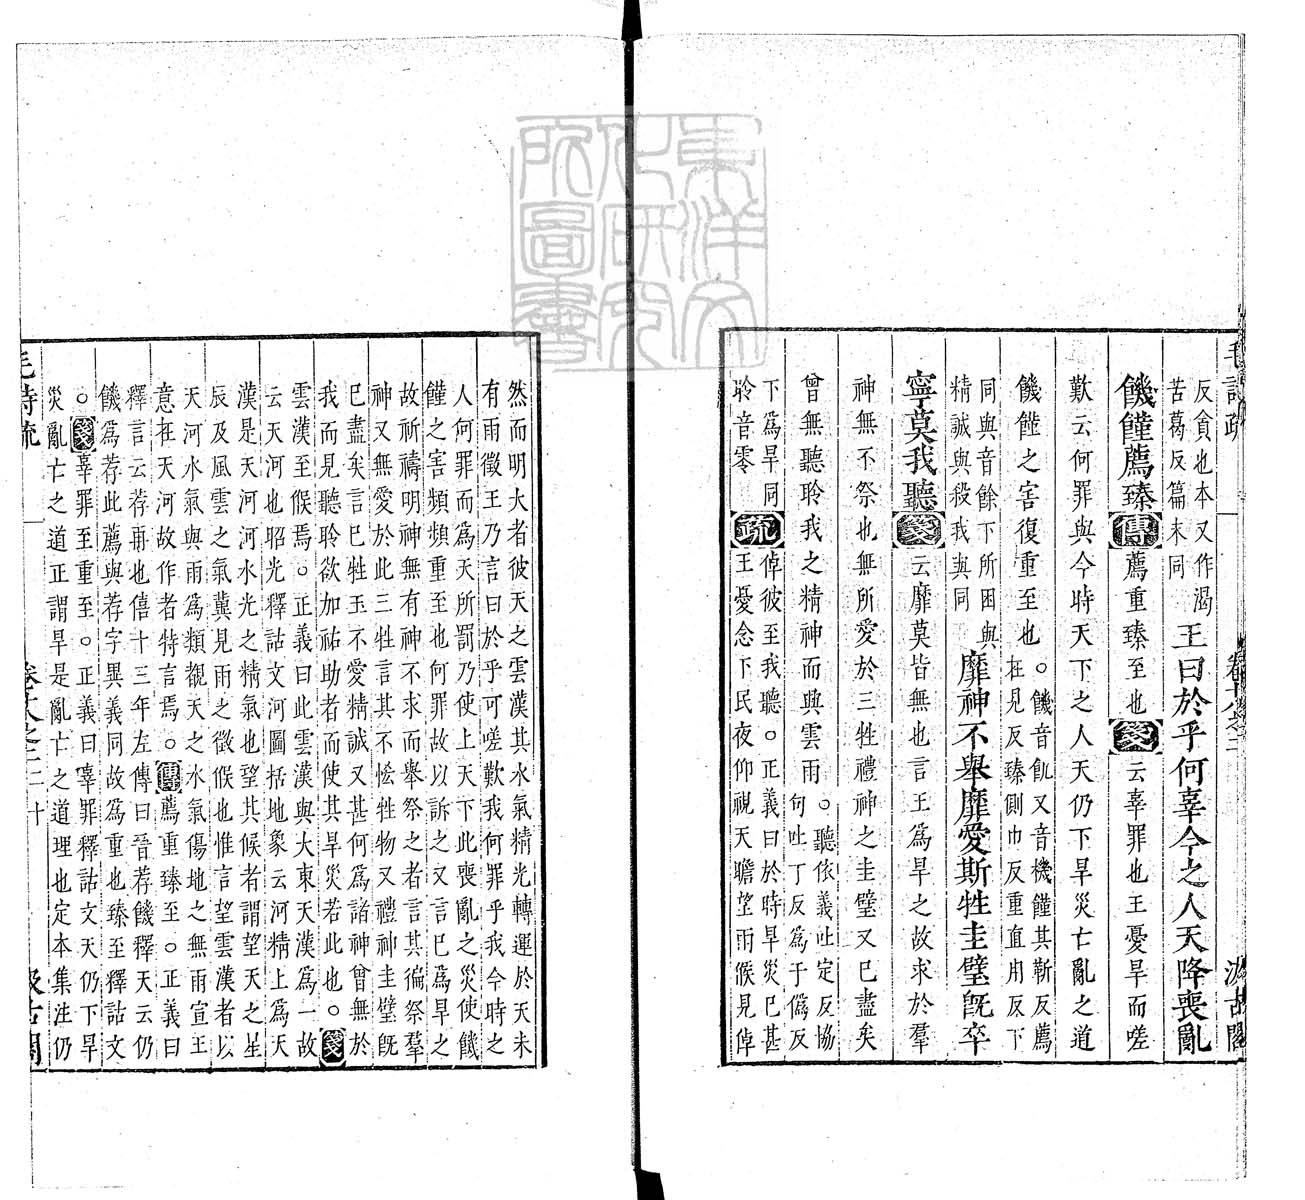 毛詩疏 卷十八之二 汲古閣
反貪也本又作渴
苦葛反篇末同
王曰於乎何辜今之人天降喪亂
饑饉薦臻傳薦重臻至也箋云辜罪也王憂旱而嗟
歎云何罪與今時天下之人天仍下旱災亡亂之道
饑饉之害復重至也
○饑音飢又音機饉其靳反薦
在見反臻側巾反重直用反下
同與音餘下所困與
精誠與殺我與同
靡神不舉靡愛斯牲圭璧旣卒
寧莫我聽箋云靡莫皆無也言王爲旱之故求於羣
神無不祭也無所愛於三牲禮神之圭璧又已盡矣
曾無聽聆我之精神而興雲雨
○聽依義吐定反協
句吐丁反爲于僞反
下爲旱同
聆音零
疏
倬彼至我聽○正義曰於時旱災已甚
王憂念下民夜仰視天瞻望雨候見倬
然而明大者彼天之雲漢其水氣精光轉運於天未
有雨徵王乃言曰於乎可嗟歎我何罪乎我今時之
人何罪而爲天所罰乃使上天下此喪亂之災使饑
饉之害頻頻重至也何罪故以訴之又言已爲旱之
故祈禱明神無有神不求而舉祭之者言其徧祭羣
神又無愛於此三牲言其不悋牲物又禮神圭璧旣
已盡矣言已牲玉不愛精誠又甚何爲諸神曾無於
我而見聽聆欲加祐助者而使其旱災若此也○箋
雲漢至候焉○正義曰此雲漢與大東天漢爲一故
云天河也昭光釋詁文河圖括地象云河精上爲天
漢是天河河水光之精氣也望其候者謂望天之星
辰及風雲之氣冀見雨之徵候也惟言望雲漢者以
天河水氣與雨爲類觀天之水氣傷地之無雨宣王
意在天河故作者特言焉○傳薦重臻至○正義曰
釋言云荐再也僖十三年左傳曰晉荐饑釋天云仍
饑爲荐此薦與荐字異義同故爲重也臻至釋詁文
○箋辜罪至重至○正義曰辜罪釋詁文天仍下旱
災亂亡之道正謂旱是亂亡之道理也定本集注仍
毛詩疏 卷十八之二 十 汲古閣
東洋文化研究所圖書